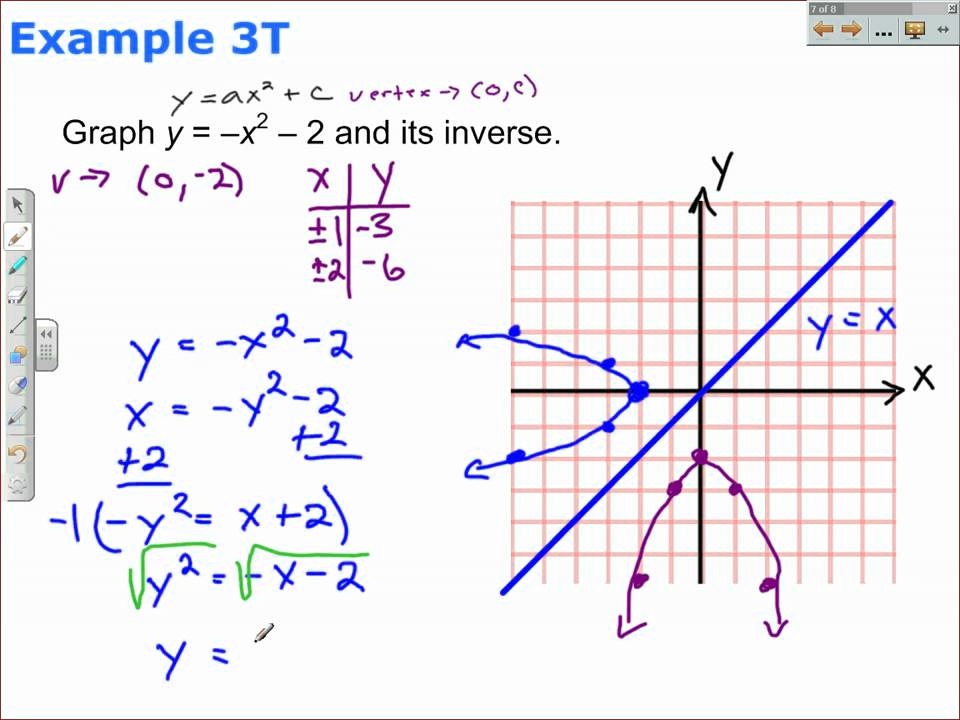 7 of 8
Example 3T
y = ax² + c vertex → (0,c)
Graph y = –x² – 2 and its inverse.
v → (0,-2)
x | y
±1 | -3
±2 | -6
y = -x² - 2
x = -y² - 2
+2 +2
-1(-y² = x + 2)
√y² = √-x - 2
y =
y
y = x
x